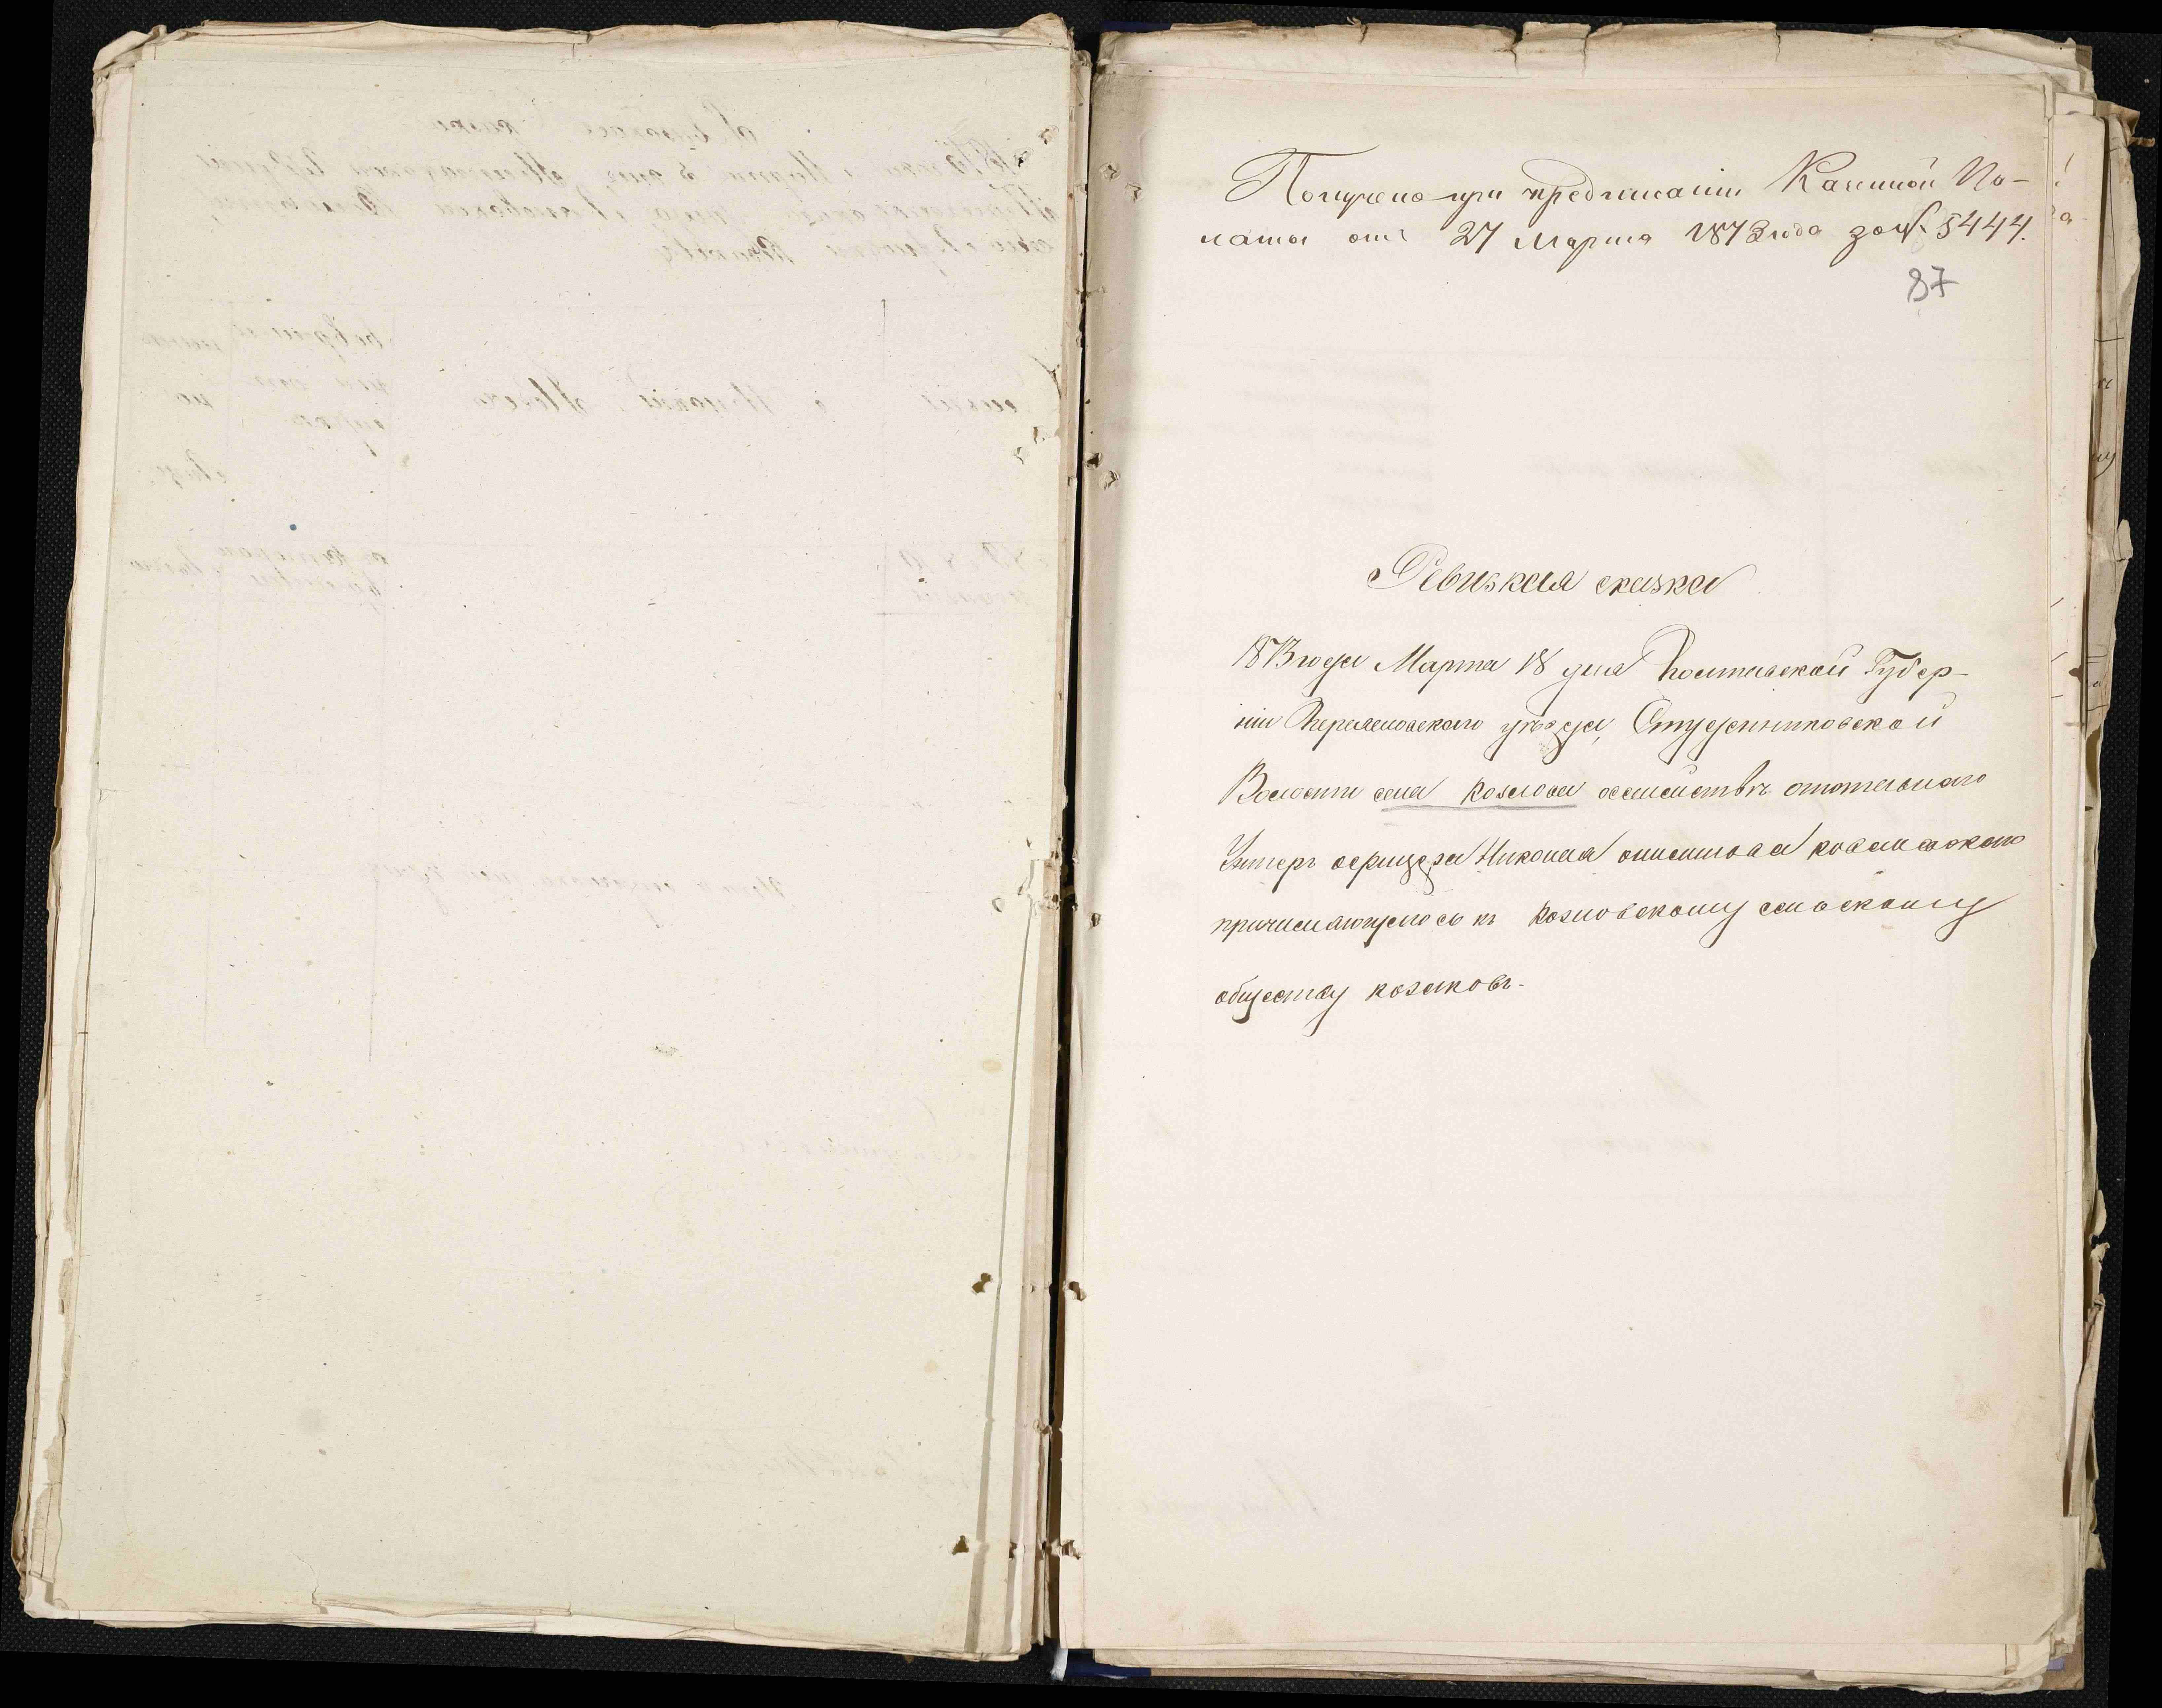 Получено при предписаніи Казенной Па-
латы отъ 27 Марта 1873 года за № 5444.
87
Ревизкая сказка
1873 года Марта 18 дня Полтавской Губер-
ніи Переяславскаго уѣзда, Студениковской
Волости села Козлова осемействѣ отставнаго
Унтеръ офицера Николая
причисляющегось къ Козловскому сельскому
обществу козаковъ.